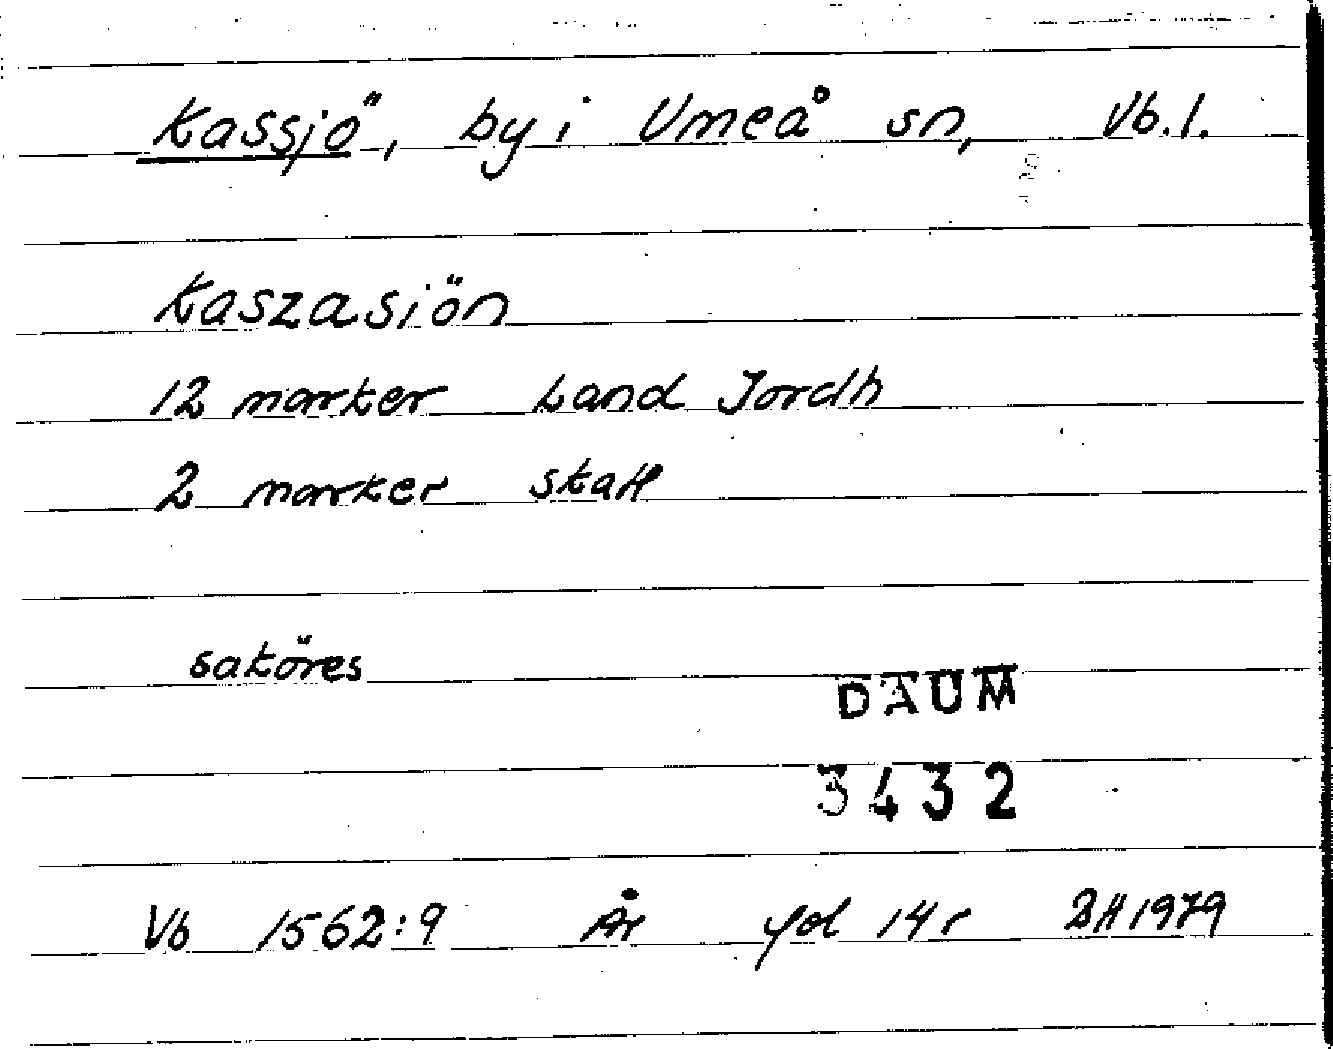 Kassjö, by i Umeå sn, Vb.l.
Kaszasiön
12 marker Land Jordh
2 marker skatt
saköres
DAUM
3432
Vb 1562:9 År fol 14r BH 1979